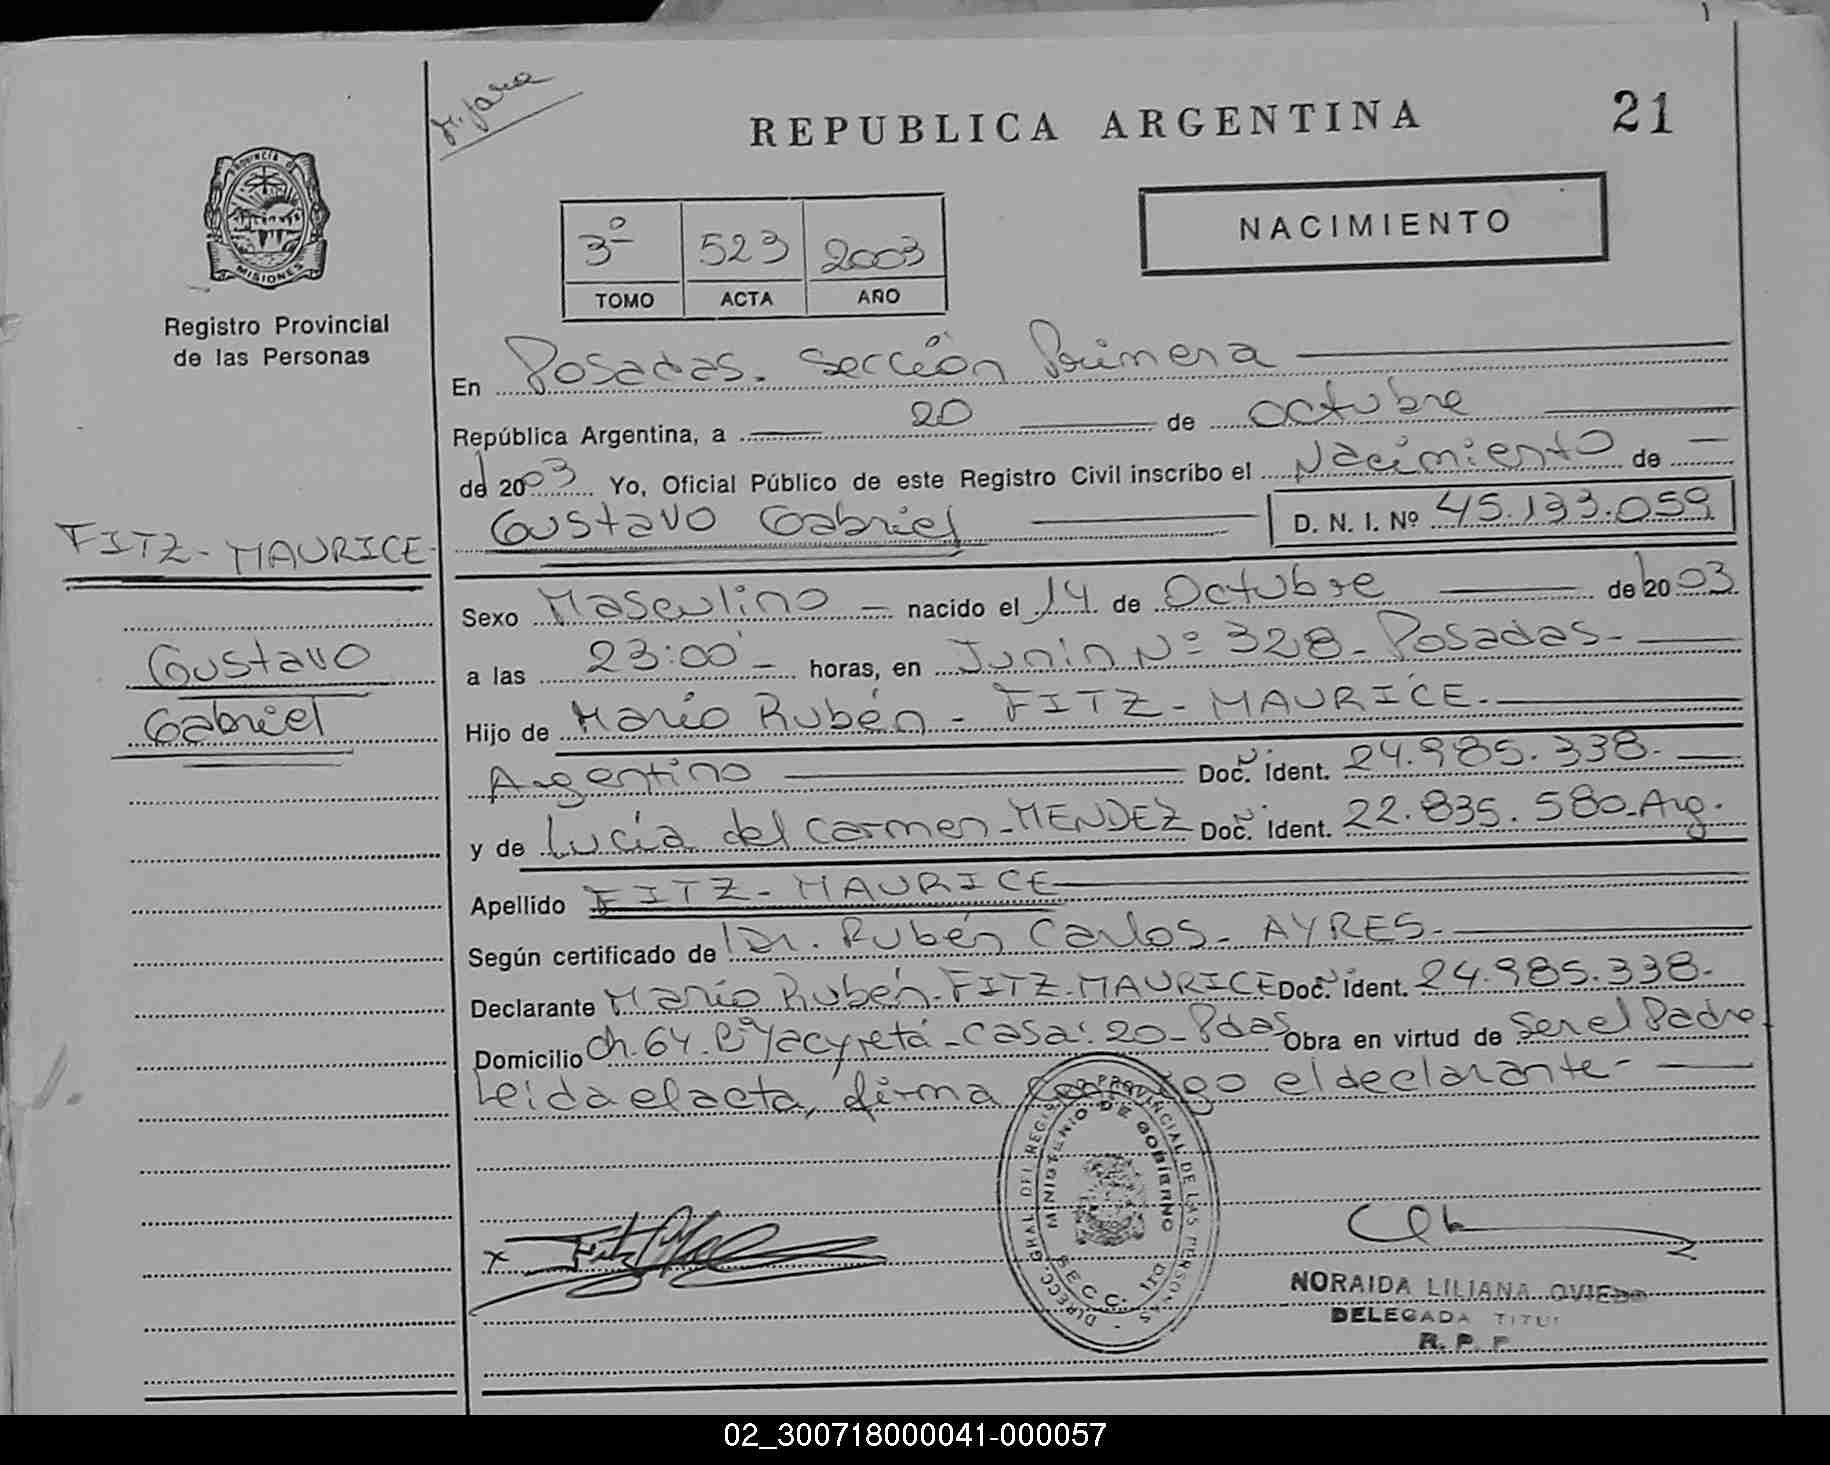 REPUBLICA ARGENTINA
21
PROVINCIA DE
MISIONES
Registro Provincial
de las Personas
3º 523 2003
TOMO ACTA AÑO
NACIMIENTO
En Posadas. Sección Primera
República Argentina, a 20 de Octubre
de 2003 Yo, Oficial Público de este Registro Civil inscribo el Nacimiento de
Gustavo Gabriel D. N. I. Nº 45.133.059
FITZ-MAURICE-
Gustavo
Gabriel
Sexo Masculino - nacido el 14 de Octubre de 2003
a las 23:00 - horas, en Junín Nº 328- Posadas-
Hijo de Mario Rubén - FITZ-MAURICE-
Argentino Doc. Ident. 24.985.338-
y de Lucía del Carmen-MENDEZ Doc. Ident. 22.835.580-Arg.
Apellido FITZ-MAURICE
Según certificado de Dr. Rubén Carlos- AYRES-
Declarante Mario Rubén-FITZ-MAURICE Doc. Ident. 24.985.338-
Domicilio Ch. 64-Bº Yacyretá-Casa: 20-Pdas Obra en virtud de Ser el Padre
Leida el acta, firma conmigo el declarante-
DIRECC. GRAL. DEL REGISTRO PROVINCIAL DE LAS PERSONAS
MINISTERIO DE GOBIERNO
SECC.
x
NORAIDA LILIANA OVIEDO
DELEGADA TITU
R. P. P.
02_300718000041-000057